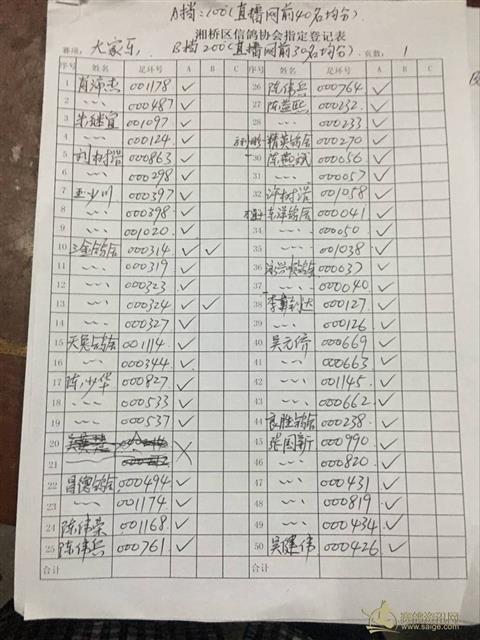 A档:100(直播网前40名均分)
湘桥区信鸽协会指定登记表
赛项: 大家乐 B档200(直播网前30名均分) 页数: 1
序号 姓名 足环号 A B C 序号 姓名 足环号 A B C
1 肖沛杰 0001178 ✓ 26 陈伟兵 000764 ✓
2 〃 000487 ✓ 27 陈益熙 000232 ✓
3 001097 ✓ 28 〃 000233 ✓
4 〃 000124 ✓ 29 精英鸽舍 000270 ✓
5 刘树浩 000863 ✓ 30 陈燕斌 000056 ✓
6 〃 000298 ✓ 31 〃 000057 ✓
7 王少川 000397 ✓ 32 许树浩 001058 ✓
8 〃 000398 ✓ 33 东洋鸽舍 000041 ✓
9 〃 001020 ✓ 34 〃 000050 ✓
10 三金鸽舍 000314 ✓ ✓ 35 〃 001038 ✓
11 〃 000319 ✓ 36 000037 ✓
12 〃 000323 ✓ 37 〃 000040 ✓
13 〃 000324 ✓ ✓ 38 000127 ✓
14 〃 000327 ✓ 39 〃 000126 ✓
15 天龙鸽舍 001114 ✓ 40 吴元侨 000669 ✓
16 〃 000344 ✓ 41 〃 000663 ✓
17 陈少华 000827 ✓ 42 〃 001145 ✓
18 〃 000533 ✓ 43 〃 000662 ✓
19 〃 000537 ✓ 44 良胜鸽舍 000238 ✓
20 45 张国新 000990 ✓
21 46 〃 000820 ✓
22 昌德鸽舍 000494 ✓ 47 〃 000431 ✓
23 〃 001174 ✓ 48 〃 000819 ✓
24 陈伟荣 001168 ✓ 49 〃 000434 ✓
25 陈伟兵 000761 ✓ 50 吴健伟 000426 ✓
合计 合计
赛鸽资讯网
www.saige.com